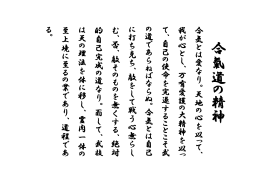 合氣道の精神
合気とは愛なり。天地の心を以つて、
我が心とし、万有愛護の大精神を以つ
て、自己の使命を完遂することこそ武
の道であらねばならぬ。合気とは自己
に打ち克ち、敵をして戦う心無らし
む、否、敵そのものを無くする、絶対
的自己完成の道なり。而して、武技
は天の理法を体に移し、霊肉一体の
至上境に至るの業であり、道程であ
る。